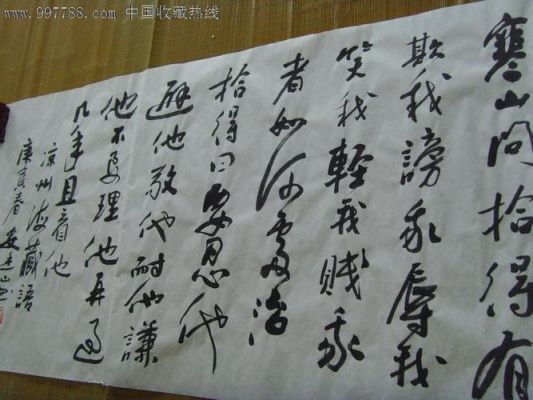 www.997788.com 中国收藏热线
寒山问拾得有
欺我謗我辱我
笑我輕我賤我
者如何處治
拾得曰要忍他
避他敬他耐他謙
他不要理他再過
几年且看他
凉州海藏語
庚寅春